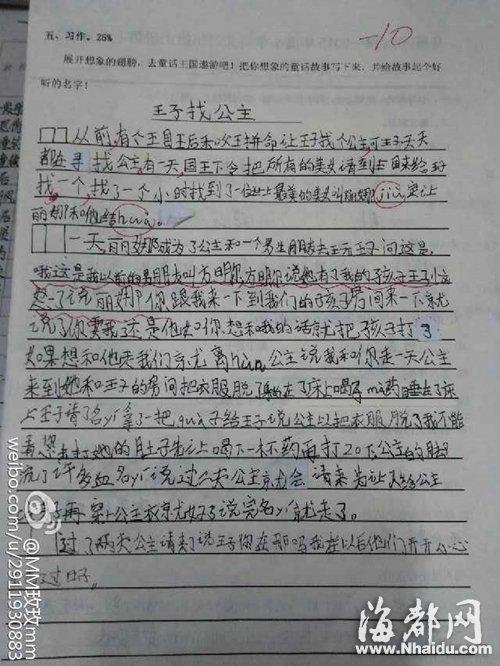 五、习作。25%
-10
展开想象的翅膀，去童话王国遨游吧！把你想象的童话故事写下来，并给故事起个好
听的名字！
王子找公主
从前，有个王国王后和国王拼命让王子找个公主可王子天天
都在寻找公主，有一天，国王下令把所有的美女请到
找一个，找了一个小时找到了一位世上最美的美女叫丽娜，jiù要让
丽娜和他结hūn。
一天，丽娜成为了公主和一个男生朋友去玩王子问这是，
哦这是我以前的男朋友叫方明，方明说她有了我的孩子王子
说丽娜你跟我来一下到我们的孩子房间来一下就
说了你要我这是他如你想和我的话就把孩子打了
如果想和他去我们就离hūn公主说我和你走一天公主
来到她和王子的房间把衣服脱了躺在了床上喝了mí药睡在了床
上王子请了名yī拿了一把guā子给王子说公主以把衣服脱了我不能
看 去打她的肚子先让喝下一杯药再打20下公主的脚
流了许多血名yī说过公主就会 来 给公主
再穿上公主衣就好了说完名yī就走了。
过了两天公主 来了说王子你在哪吗我在以后他们开开心心
过日子。
weibo.com/u/2911930883
@MM玫玫mm
海都网
www.Nhaidu.com